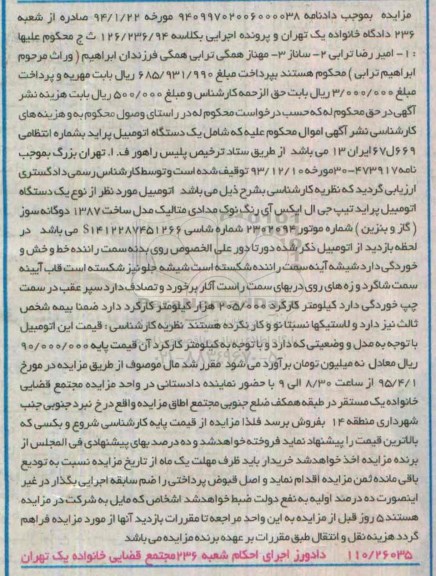 مزایده بموجب دادنامه ۹۴۰۹۹۷۰۲۰۰۶۰۰۰۰۳۸ مورخه ۹۴/۱/۲۲ صادره از شعبه
۲۳۶ دادگاه خانواده یک تهران و پرونده اجرایی بکلاسه ۱۲۶/۲۳۶/۹۴ ث ج محکوم علیها
: ۱- امیر رضا ترابی ۲- ساناز ۳- مهناز همگی ترابی همگی فرزندان ابراهیم ( وراث مرحوم
ابراهیم ترابی ) محکوم هستند بپرداخت مبلغ ۶۸۵/۹۳۱/۹۹۰ ریال بابت مهریه و پرداخت
مبلغ ۳/۰۰۰/۰۰۰ ریال بابت حق الزحمه کارشناس و مبلغ ۵۰۰/۰۰۰ ریال بابت هزینه نشر
آگهی در حق محکوم له که حسب درخواست محکوم له در راستای وصول محکوم به و هزینه های
کارشناسی نشر آگهی اموال محکوم علیه که شامل یک دستگاه اتومبیل پراید بشماره انتظامی
۶۶۹ل۶۷ ایران ۱۳ می باشد از طریق ستاد ترخیص پلیس راهور ف.ا. تهران بزرگ بموجب
نامه ۴۷۳۹۱۷-۳۰ مورخه ۹۳/۱۲/۱۰ توقیف شده است و توسط کارشناس رسمی دادگستری
ارزیابی گردید که نظریه کارشناسی بشرح ذیل می باشد اتومبیل مورد نظر از نوع یک دستگاه
اتومبیل پراید تیپ جی ال ایکس آی رنگ نوک مدادی متالیک مدل ساخت ۱۳۸۷ دوگانه سوز
( گاز و بنزین ) شماره موتور ۲۳۰۲۰۹۴ شماره شاسی S۱۴۱۲۲۸۷۴۵۱۲۶۶ می باشد در
لحظه بازدید از اتومبیل ذکر شده دور تا دور علی الخصوص روی بدنه سمت راننده خط و خش و
خوردگی دارد شیشه آینه سمت راننده شکسته است شیشه جلو نیز شکسته است قاب آیینه
سمت شاگرد و زه های روی دربهای سمت راست آثار برخورد و تصادف دارد سپر عقب در سمت
چپ خوردگی دارد کیلومتر کارکرد ۲۰۵/۰۰۰ هزار کیلومتر کارکرد دارد ضمنا بیمه شخص
ثالث نیز دارد و لاستیکها نسبتا نو و کار نکرده هستند نظریه کارشناسی : قیمت این اتومبیل
با توجه به مدل و وضعیتی که دارد و با توجه به کیلومتر کارکرد آن قیمت پایه ۹۰/۰۰۰/۰۰۰
ریال معادل نه میلیون تومان برآورد می شود مقرر شد مال موصوف از طریق مزایده در مورخ
۹۵/۴/۱ از ساعت ۸/۳۰ الی ۹ با حضور نماینده دادستانی در واحد مزایده مجتمع قضایی
خانواده یک مستقر در طبقه همکف ضلع جنوبی مجتمع اطاق مزایده واقع در خ نبرد جنوبی جنب
شهرداری منطقه ۱۴ بفروش برسد فلذا مزایده از قیمت پایه کارشناسی شروع و بکسی که
بالاترین قیمت را پیشنهاد نماید فروخته خواهد شد و ده درصد بهای پیشنهادی فی المجلس از
برنده مزایده اخذ خواهد شد خریدار باید ظرف مهلت یک ماه از تاریخ مزایده نسبت به تودیع
باقی مانده ثمن مزایده اقدام نماید و اصل قبوض پرداختی را ضم سابقه اجرایی بگذارد در غیر
اینصورت ده درصد اولیه به نفع دولت ضبط خواهد شد اشخاص که مایل به شرکت در مزایده
هستند ۵ روز قبل از مزایده به این واحد مراجعه تا مقررات بازدید آنها از مورد مزایده فراهم
گردد هزینه نقل و انتقال طبق مقررات بر عهده برنده مزایده می باشد
۱۱۰/۲۶۰۳۵ دادورز اجرای احکام شعبه ۲۳۶ مجتمع قضایی خانواده یک تهران